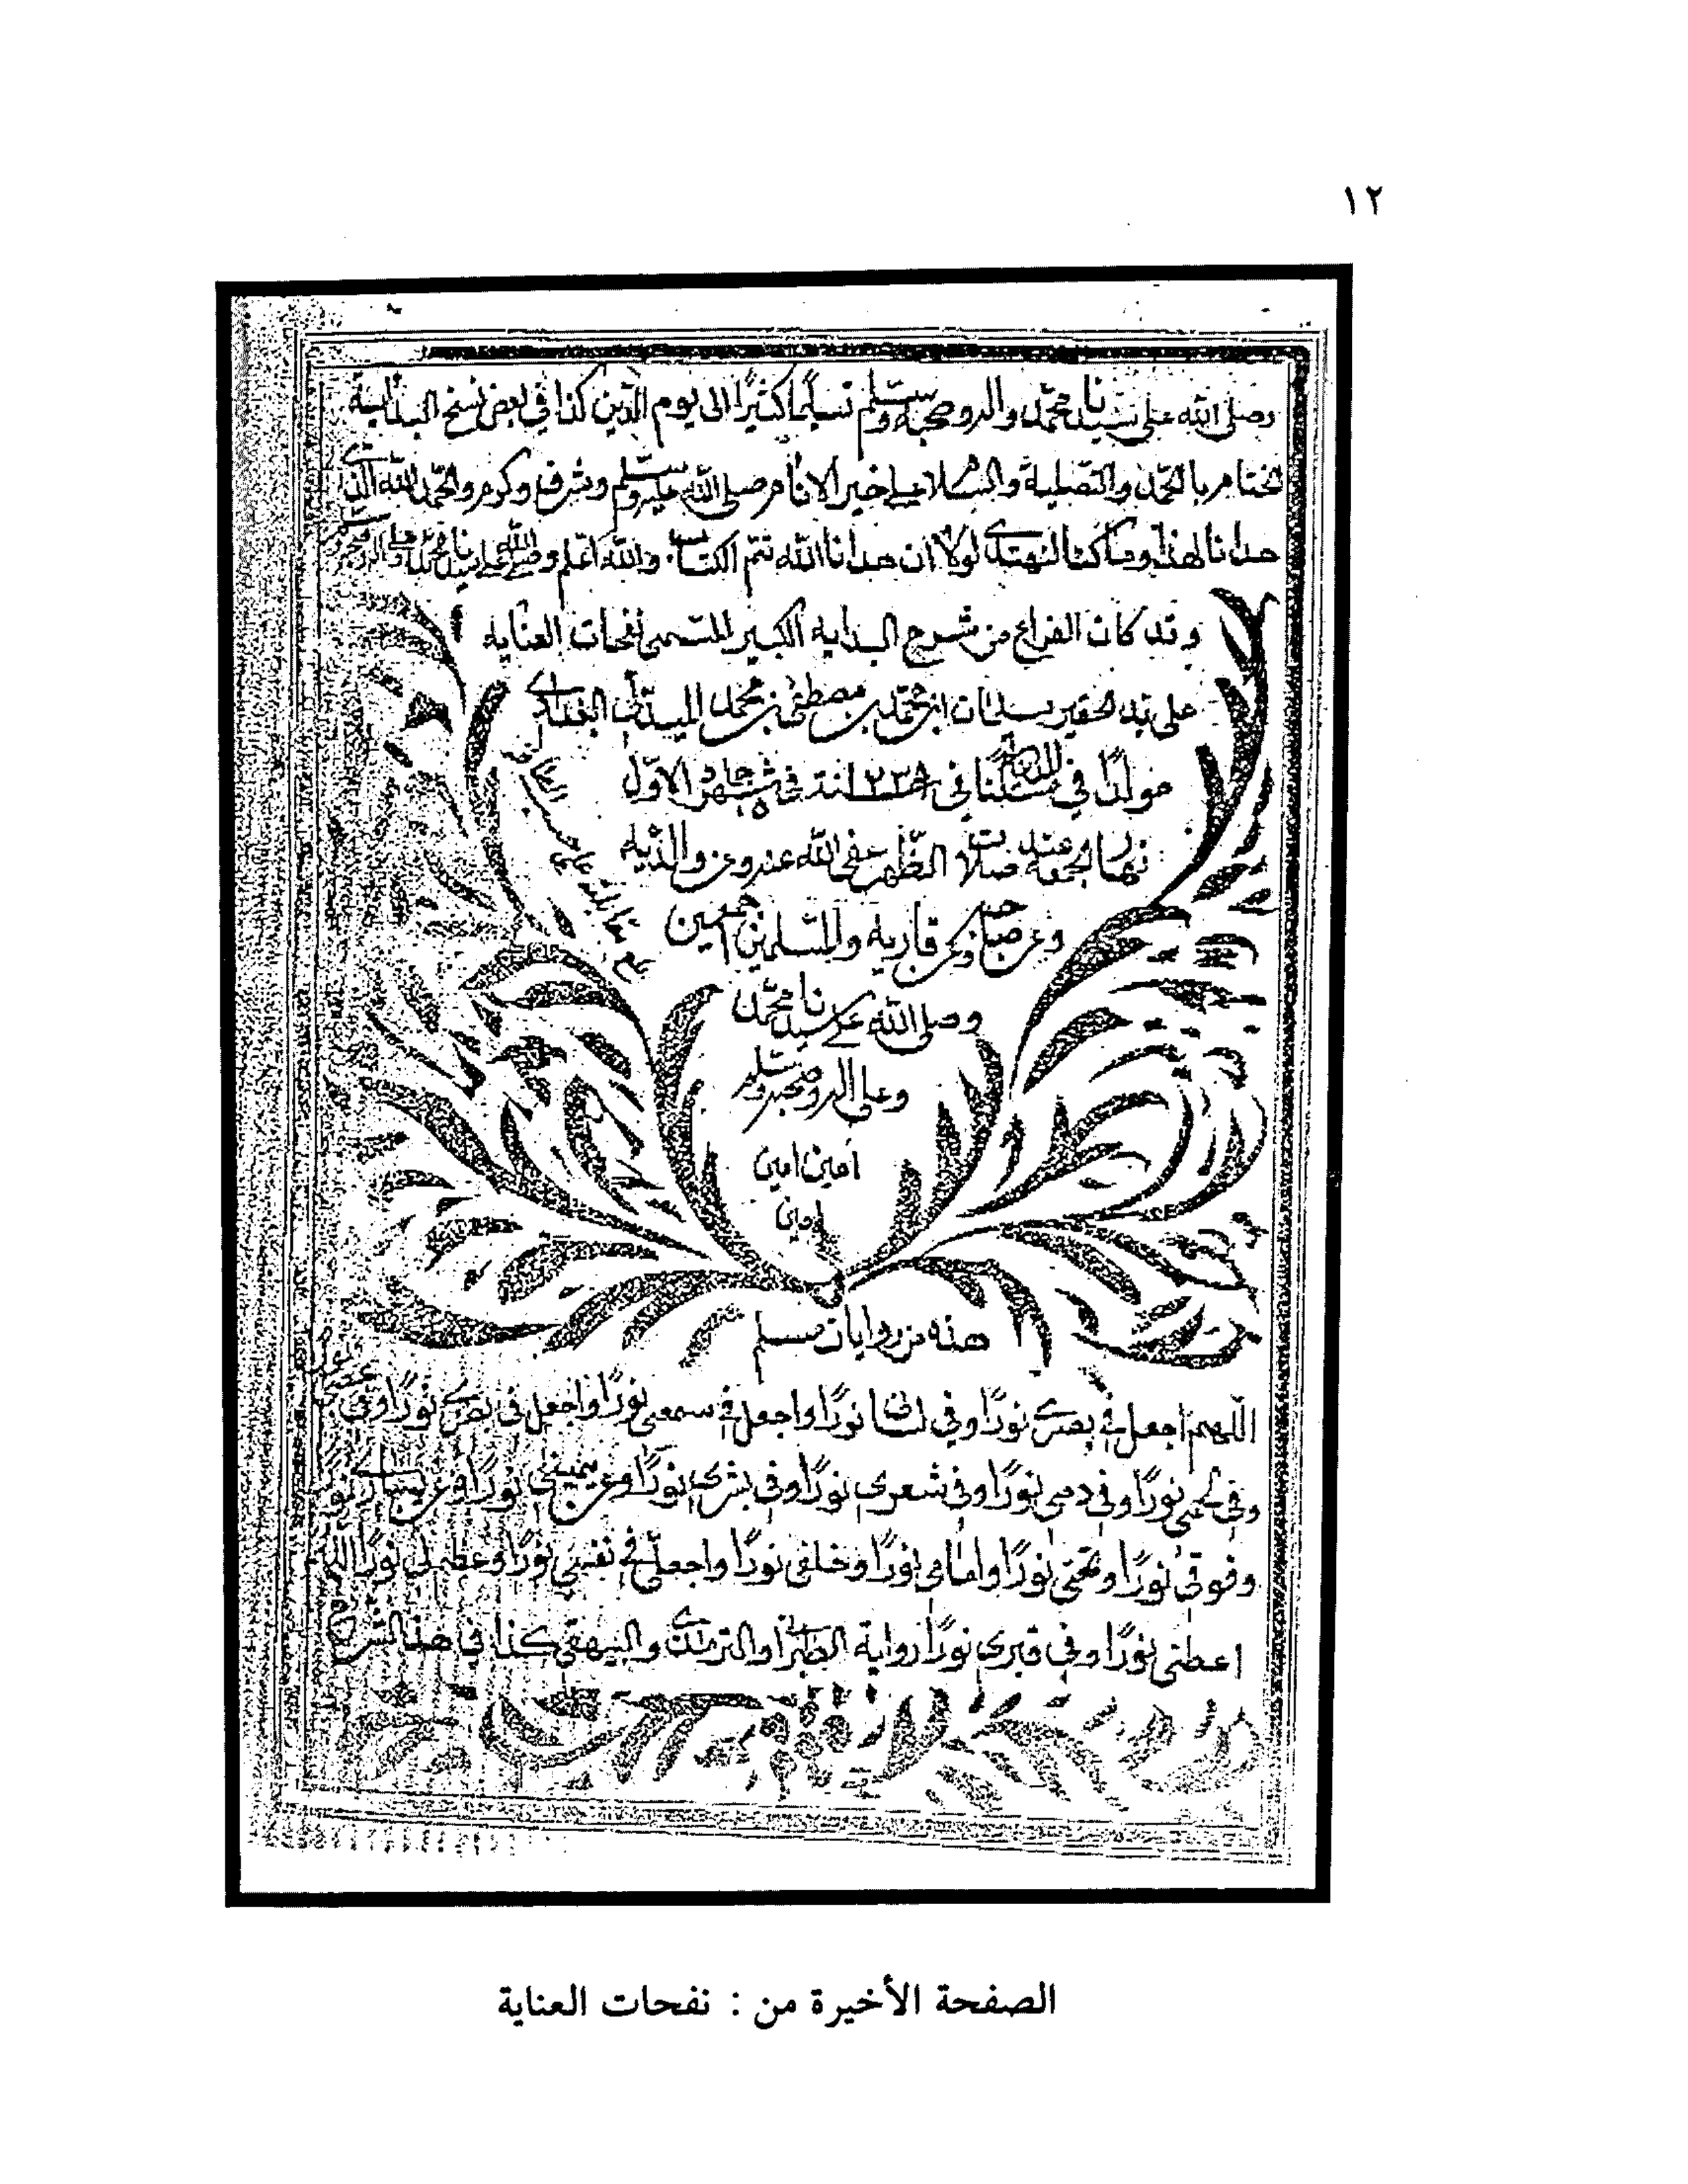 ١٢
وصلى الله على سيدنا محمد واله وصحبه وسلم تسليما كثيرا الى يوم الدين كذا في بعض نسخ البداية
بالحمد والتصلية والسلام على خير الانام صلى الله عليه وسلم وشرف وكرم والحمد لله الذي
هدانا لهذا وما كنا لنهتدي لولا ان هدانا الله تم الكتاب والله اعلم وصلى الله على سيدنا محمد وعلى اله
وقد كان الفراغ من شرح البدايه الكبير المسمى نفحات العنايه
على يد الحقير سليمان ابن محمد بن مصطفى بن محمد
مولدا في مسكنا في سنة في شهر جماد الاول
نهار الجمعة عند صلات الظهر عفى الله عنه وعن والديه
وعن وعن قاريه والمسلمين اجمعين
وصلى الله على سيدنا محمد
وعلى اله وصحبه وسلم
امين امين
امين
هذه من روايات مسلم
اللهم اجعل في بصري نورا وفي لساني نورا واجعل في سمعي نورا واجعل في بصري نورا وفي
وفي لحمي نورا وفي دمي نورا وفي شعري نورا وفي بشري نورا وعن يميني نورا وعن يساري نورا
وفوقي نورا وتحتي نورا وامامي نورا وخلفي نورا واجعل في نفسي نورا وعظم لي نورا اللهم
اعطني نورا وفي قبري نورا رواية والترمذي والبيهقي كذا في هذا الشرح
الصفحة الأخيرة من : نفحات العناية